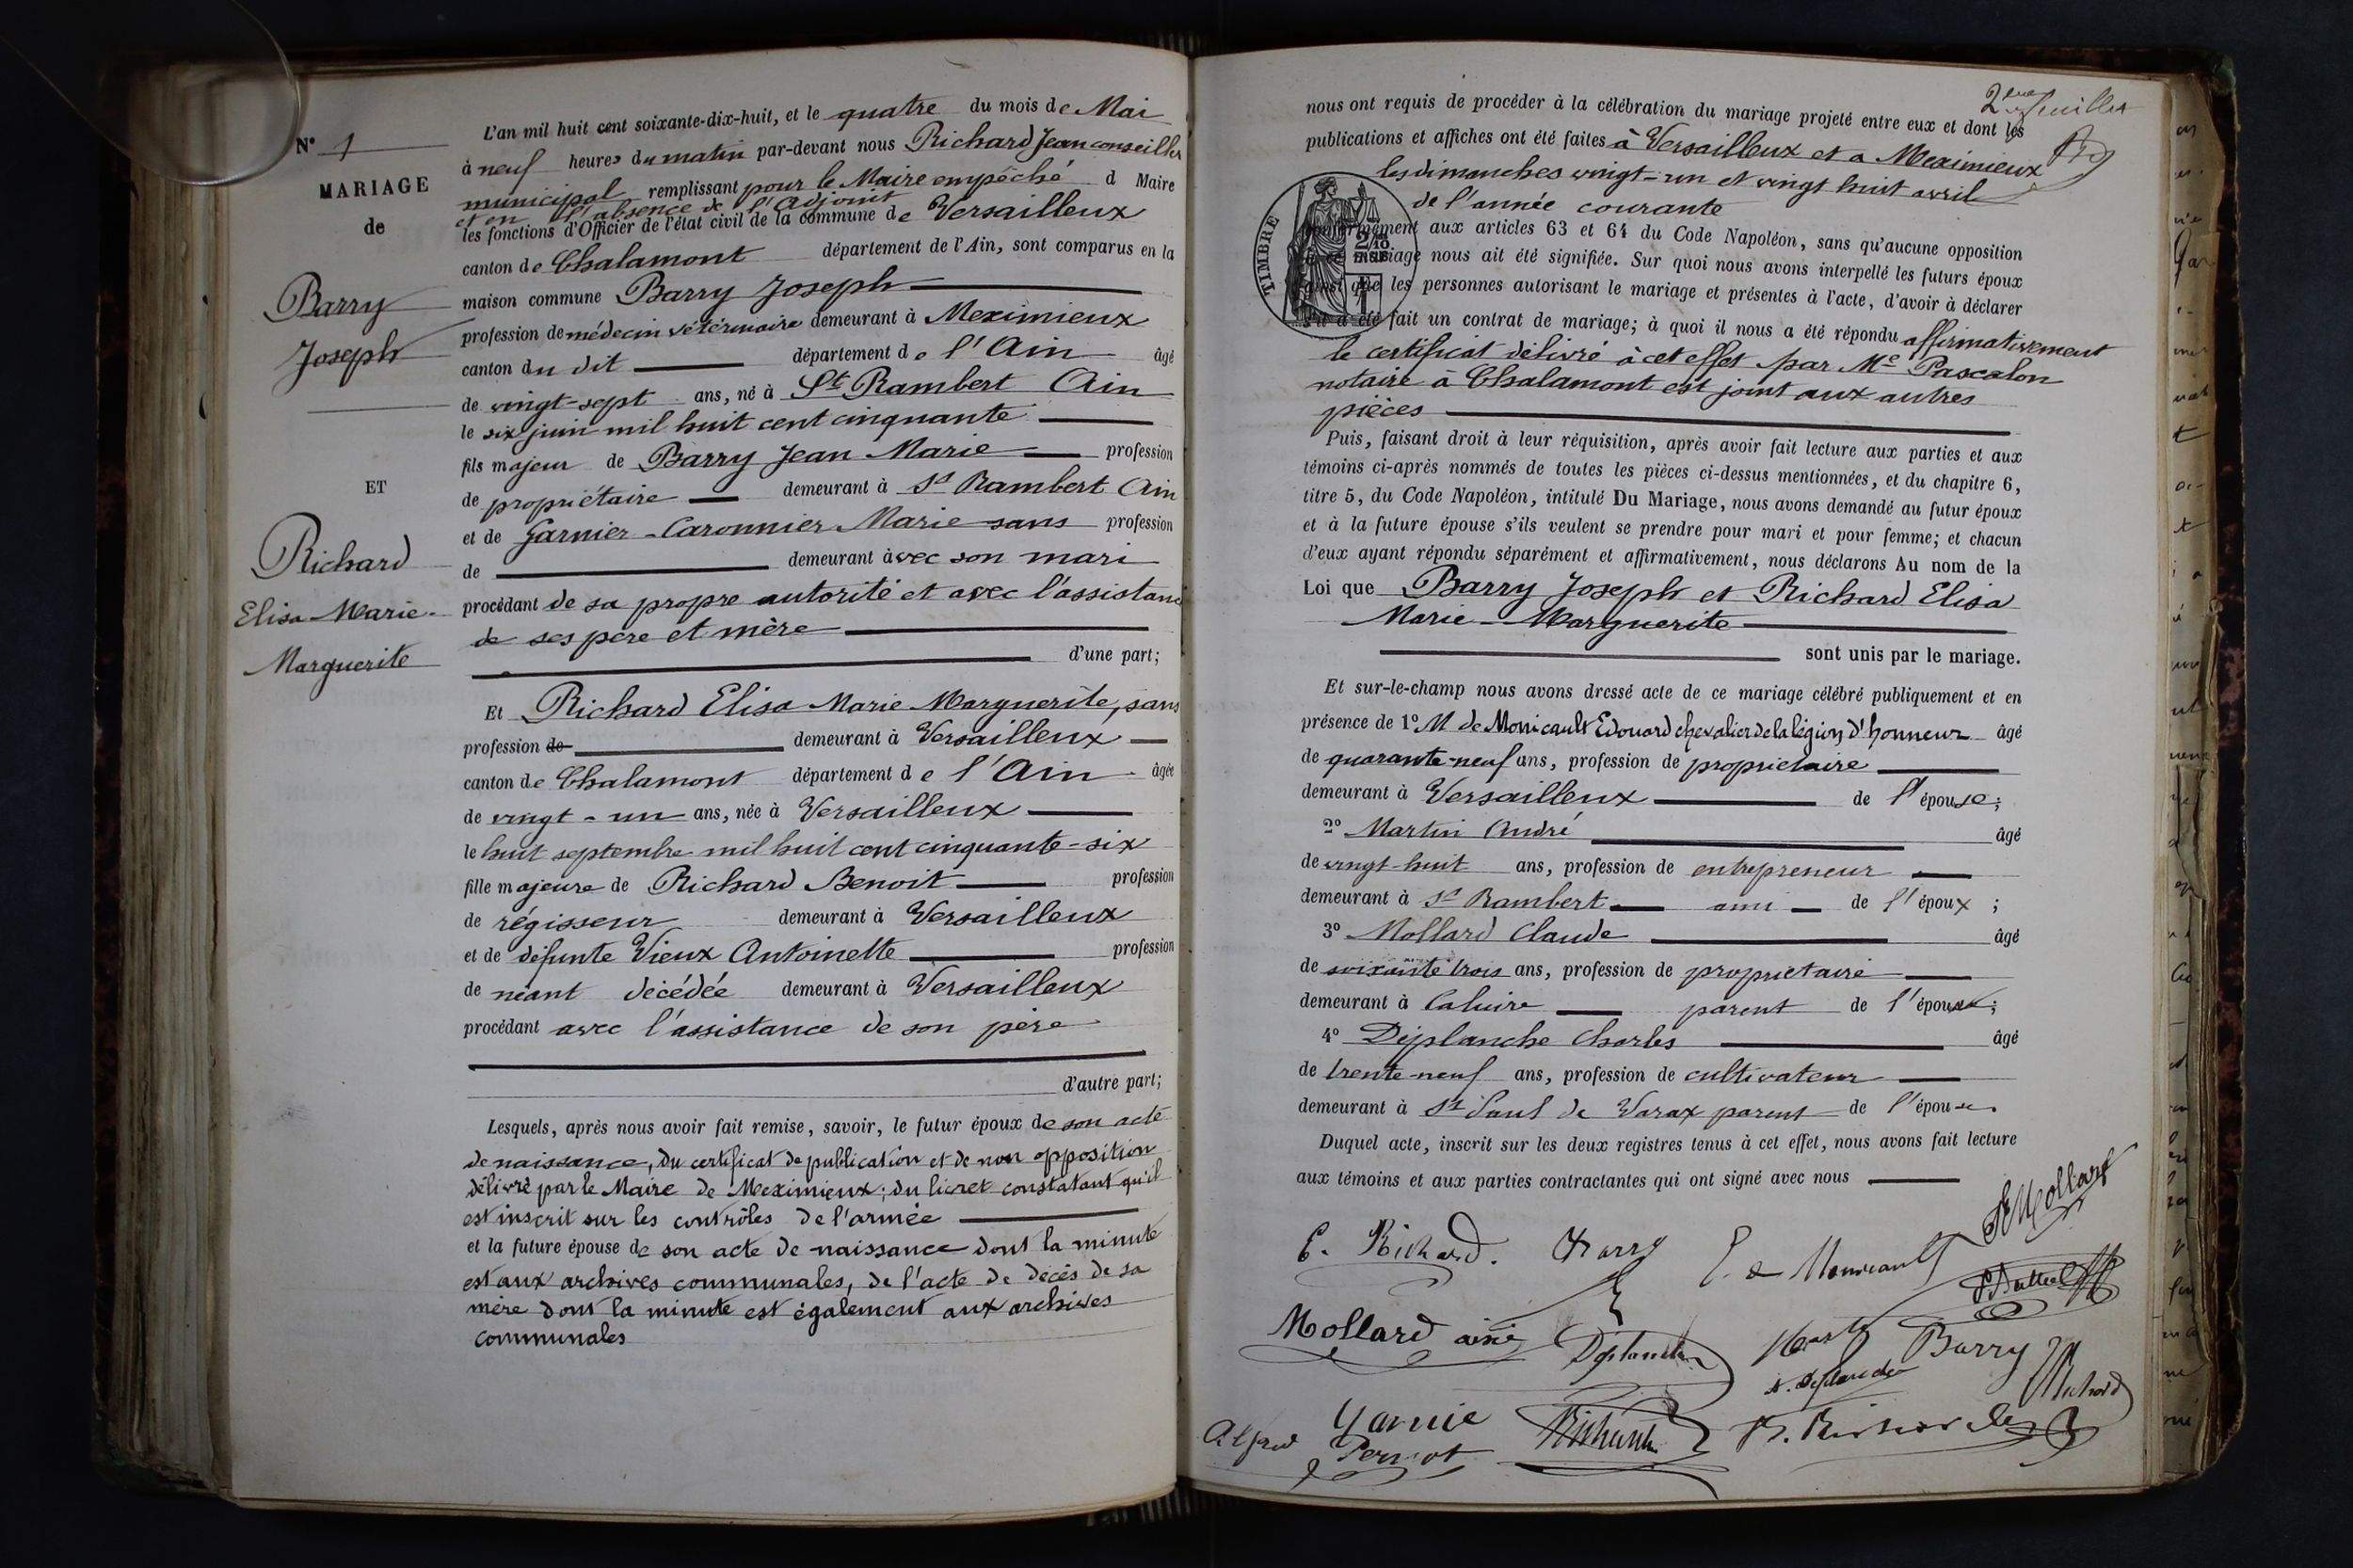 N° 1
MARIAGE
de
Barry
Joseph
ET
Richard
Elisa Marie
Marguerite
L'an mil huit cent soixante-dix-huit, et le quatre du mois de Mai
à neuf heures du matin par-devant nous Richard Jean conseiller
municipal remplissant pour le Maire empêché d Maire
et en l'absence de l'Adjoint
les fonctions d'Officier de l'état civil de la commune de Versailleux
canton de Chalamont département de l'Ain, sont comparus en la
maison commune Barry Joseph
profession de médecin vétérinaire demeurant à Meximieux
canton du dit département de l'Ain âgé
de vingt-sept ans, né à St Rambert Ain
le six juin mil huit cent cinquante
fils majeur de Barry Jean Marie profession
de propriétaire demeurant à St Rambert Ain
et de Garnier-Caronnier Marie sans profession
de demeurant avec son mari
procédant de sa propre autorité et avec l'assistance
de ses père et mère
d'une part;
Et Richard Elisa Marie Marguerite, sans
profession de demeurant à Versailleux
canton de Chalamont département de l'Ain âgée
de vingt-un ans, née à Versailleux
le huit septembre mil huit cent cinquante-six
fille majeure de Richard Benoit profession
de régisseur demeurant à Versailleux
et de défunte Vieux Antoinette profession
de néant décédée demeurant à Versailleux
procédant avec l'assistance de son père
d'autre part;
Lesquels, après nous avoir fait remise, savoir, le futur époux de son acte
de naissance, du certificat de publication et de non opposition
délivré par le Maire de Meximieux; du livret constatant qu'il
est inscrit sur les contrôles de l'armée
et la future épouse de son acte de naissance dont la minute
est aux archives communales, de l'acte de décès de sa
mère dont la minute est également aux archives
communales
2me feuillet
nous ont requis de procéder à la célébration du mariage projeté entre eux et dont les
publications et affiches ont été faites à Versailleux et a Meximieux
les dimanches vingt-un et vingt huit avril
de l'année courante
TIMBRE
conformément aux articles 63 et 64 du Code Napoléon, sans qu'aucune opposition
à ce mariage nous ait été signifiée. Sur quoi nous avons interpellé les futurs époux
ainsi que les personnes autorisant le mariage et présentes à l'acte, d'avoir à déclarer
s'il a été fait un contrat de mariage; à quoi il nous a été répondu affirmativement
le certificat délivré à cet effet par Me Pascalon
notaire à Chalamont est joint aux autres
pièces
Puis, faisant droit à leur réquisition, après avoir fait lecture aux parties et aux
témoins ci-après nommés de toutes les pièces ci-dessus mentionnées, et du chapitre 6,
titre 5, du Code Napoléon, intitulé Du Mariage, nous avons demandé au futur époux
et à la future épouse s'ils veulent se prendre pour mari et pour femme; et chacun
d'eux ayant répondu séparément et affirmativement, nous déclarons Au nom de la
Loi que Barry Joseph et Richard Elisa
Marie-Marguerite
sont unis par le mariage.
Et sur-le-champ nous avons dressé acte de ce mariage célébré publiquement et en
présence de 1° M de Monicault Edouard chevalier de la légion d'honneur âgé
de quarante-neuf ans, profession de propriétaire
demeurant à Versailleux de l'épouse;
2° Martin André âgé
de vingt-huit ans, profession de entrepreneur
demeurant à St Rambert ami de l'époux;
3° Mollard Claude âgé
de soixante trois ans, profession de propriétaire
demeurant à Caluire parent de l'épouse;
4° Déplanche Charles âgé
de trente-neuf ans, profession de cultivateur
demeurant à St Paul de Varax parent de l'épouse.
Duquel acte, inscrit sur les deux registres tenus à cet effet, nous avons fait lecture
aux témoins et aux parties contractantes qui ont signé avec nous
E. Richard. Barry E. de Monicault Mollard
Mollard ainé Déplanche Barry
Richard
Alfred Pernot Richard B. Richard